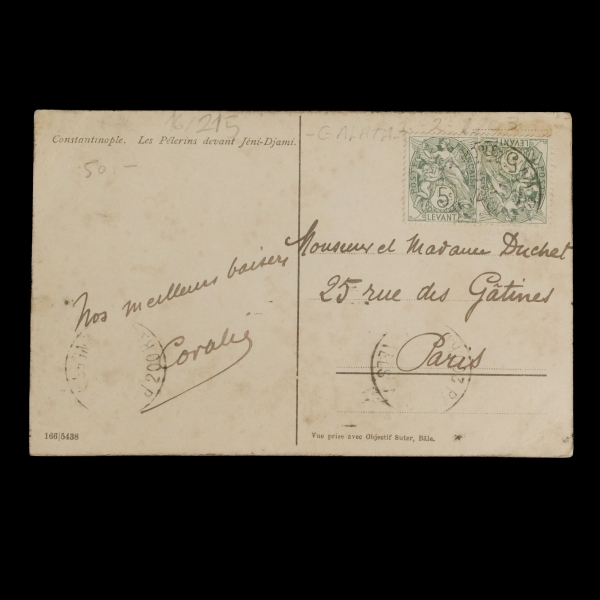 16/215
Constantinople. Les Pélerins devant Jéni-Djami.
50.-
Nos meilleurs baisers
Coralie
166|5438
-GALATA-
5c
LEVANT
LEVANT
5c
Monsieur et Madame Duchet
25 rue des Gâtines
Paris
Vue prise avec Objectif Suter, Bâle.